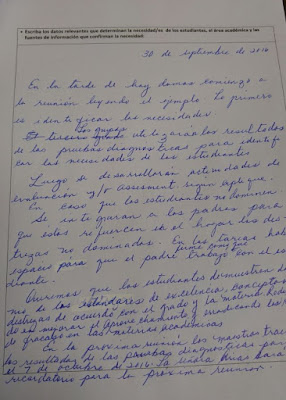 • Escriba los datos relevantes que determinan la necesidad/es de los estudiantes, el área académica y las
fuentes de información que confirman la necesidad:
30 de septiembre de 2016
En la tarde de hoy damos comienzo a
la reunión leyendo el ejemplo. Lo primero
es identificar las necesidades.
Los grupos
tercer grado utilizarán los resultados
de las pruebas diagnósticas para identifi
car las necesidades de los estudiantes
Luego se desarrollarán actividades de
evaluación y/o assessment según aplique.
En caso que los estudiantes no dominen
Se integrarán a los padres para
que estos refuercen en el hogar las des-
trezas no dominadas. En las tareas hab
espacio para que el padre trabaje con el es
diante.
Queremos que los estudiantes demuestren do
minio de los estándares de excelencia, conceptos
destrezas de acuerdo con el grado y la materia
de mejorar el aprovechamiento y
de fracaso en las materias académicas
En la próxima reunión los maestros trae
los resultados de las pruebas diagnósticas par
el 7 de octubre de 2016. La señora dará
recordatorio para la próxima reunión.